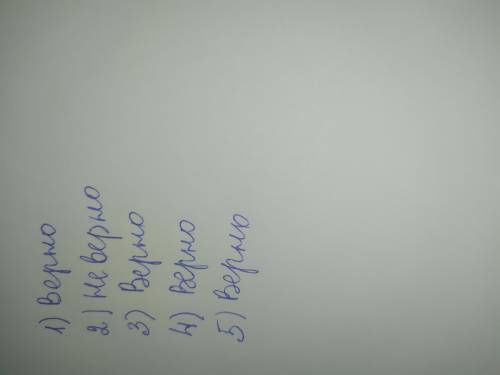 1) Верно
2) не верно
3) Верно
4) Верно
5) Верно